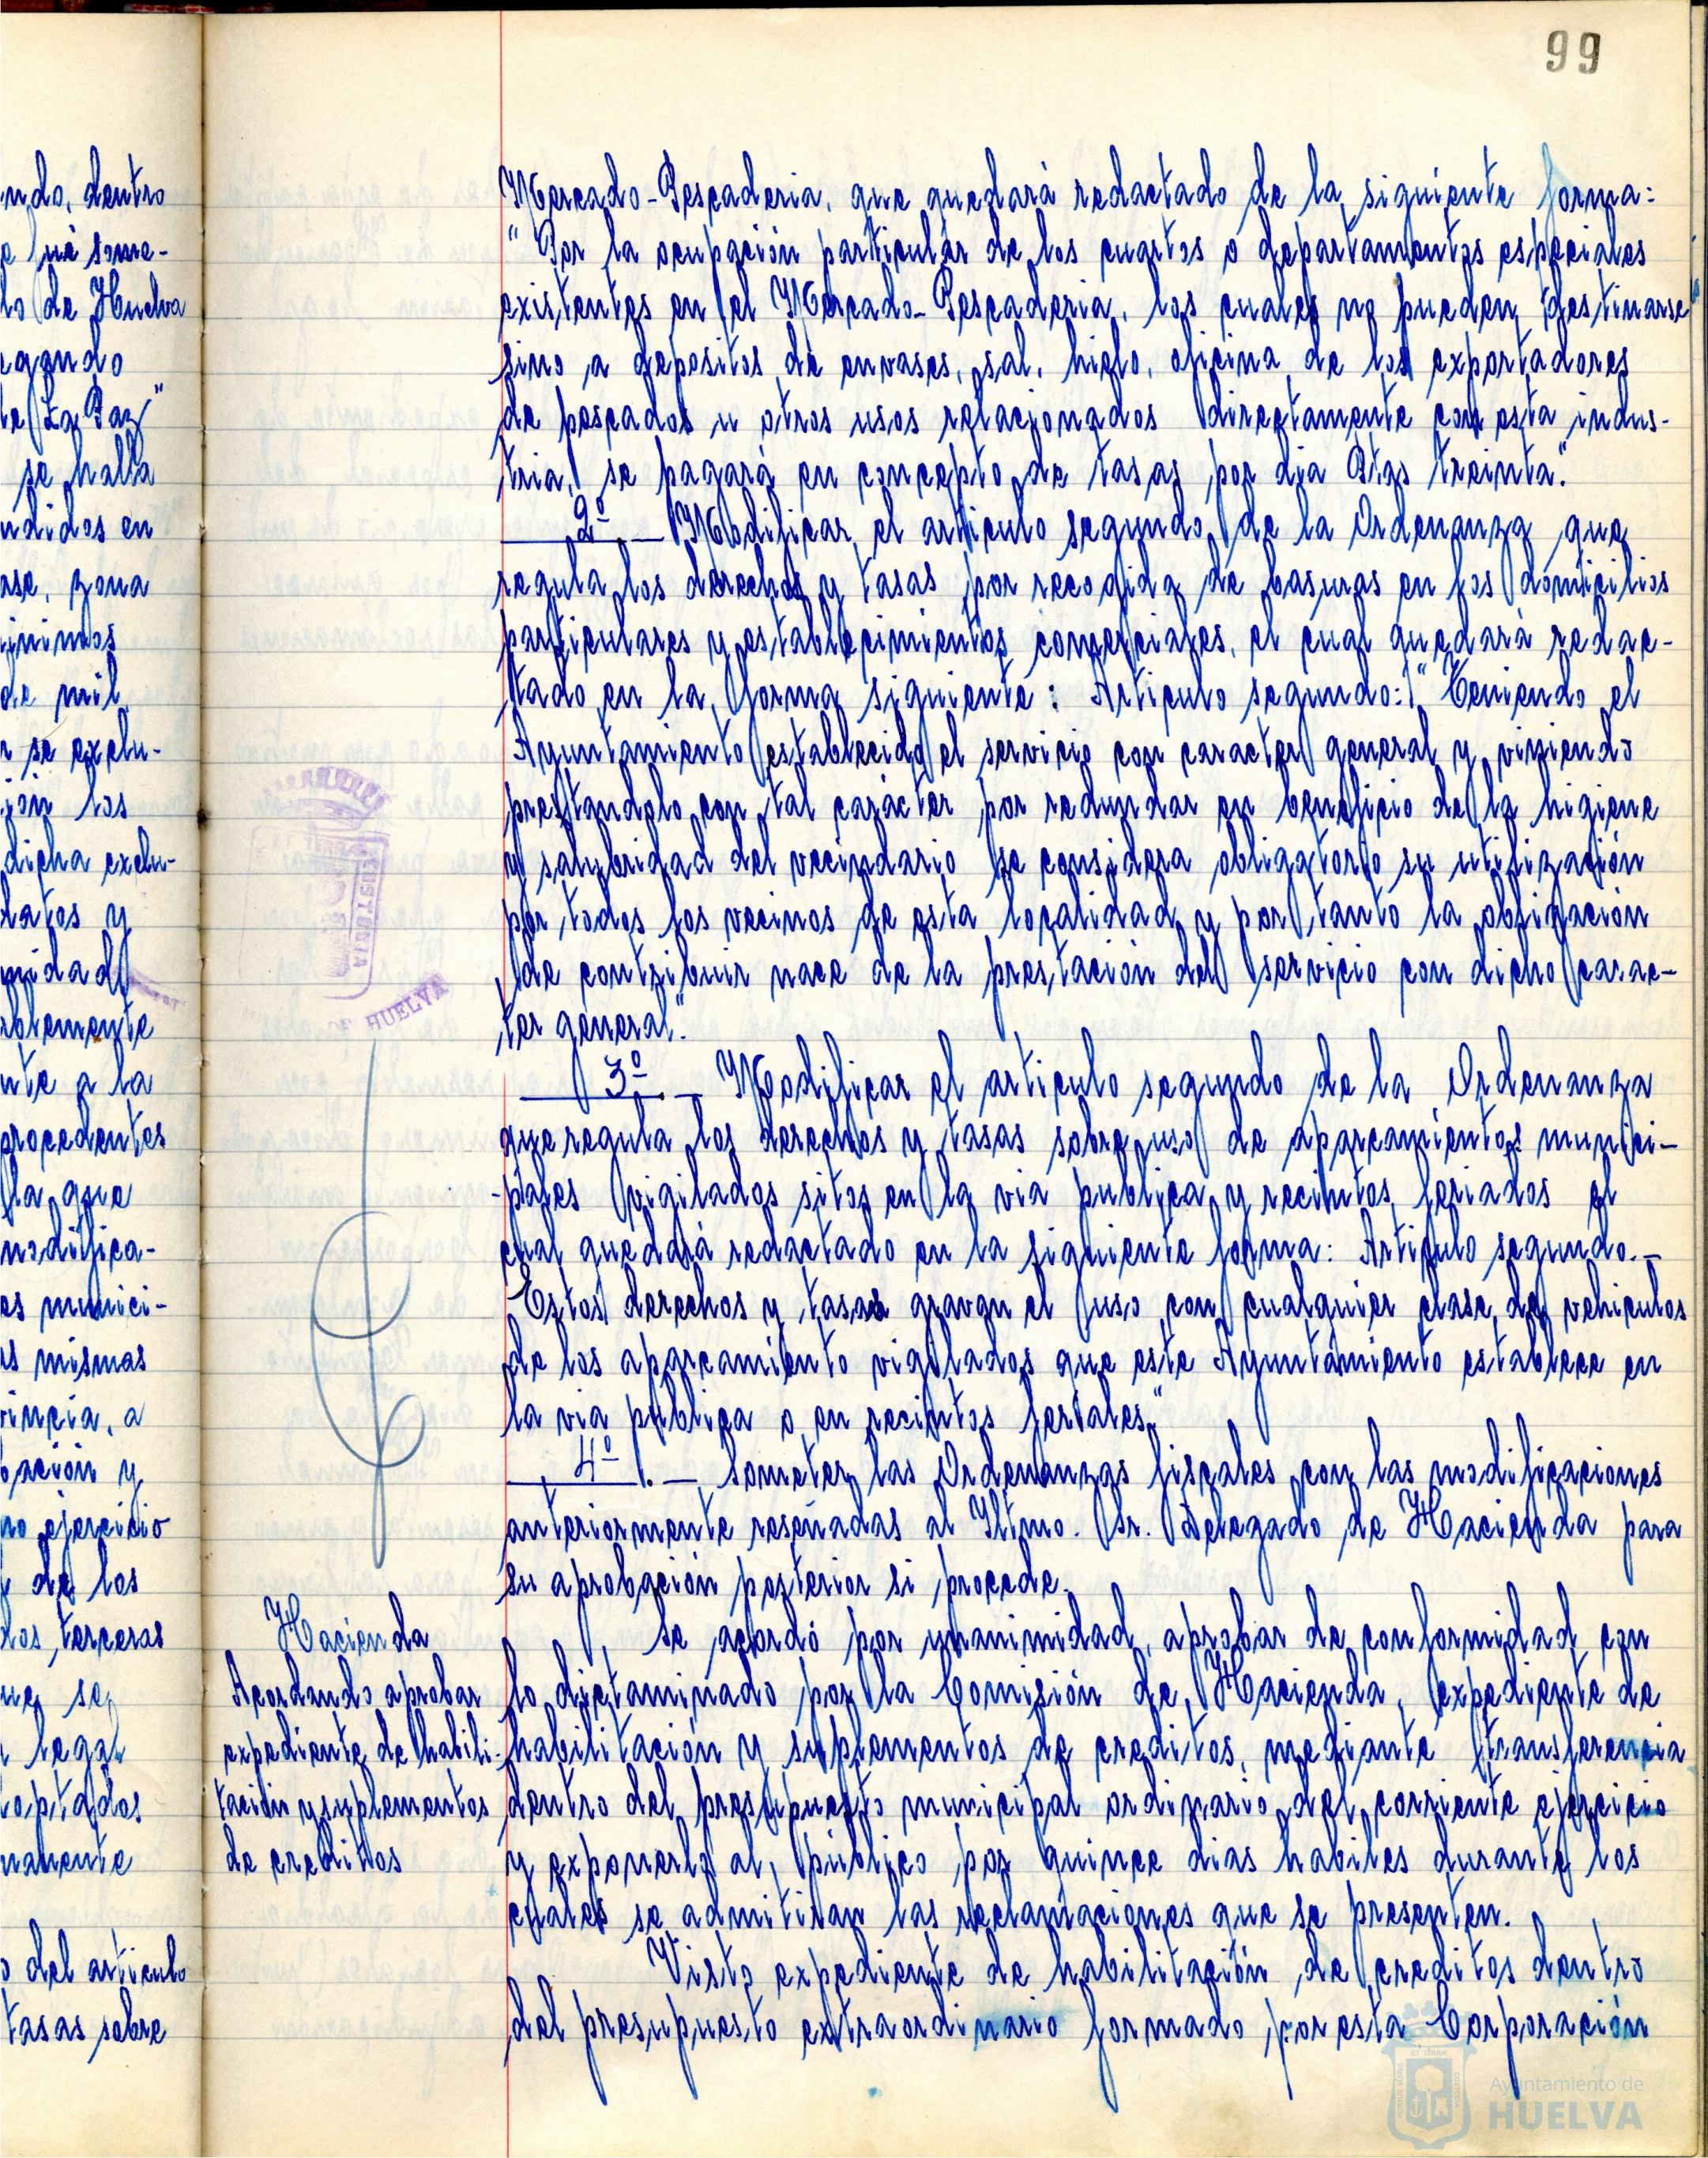 99
ndo, dentro
e fué some-
lo de Huelva
egundo
te La Paz"
se halla
ndidos en
ase, zona
ínimos
de mil
r se exclu-
ión los
dicha exclu-
datos y
midad
ablemente
nte a la
procedentes
la que
modifica-
es munici-
as mismas
vincia, a
bación y
mo ejercicio
de los
dos, terceras
ue se
legal
optados
namente
o del artículo
tasas sobre
Mercado-Pescaderia, que quedará redactado de la siguiente forma:
"Por la ocupación particular de los cuartos o departamentos especiales
existentes en el Mercado-Pescaderia, los cuales no pueden destinarse
sino a depositos de envases, sal, hielo, oficina de los exportadores
de pescados u otros usos relacionados directamente con esta indus-
tria, se pagará en concepto de tasas por dia Ptas treinta."
2º.— Modificar el articulo segundo de la Ordenanza que
regula los derechos y tasas por recogida de basuras en los domicilios
particulares y establecimientos comerciales, el cual quedará redac-
tado en la forma siguiente: Articulo segundo: "Teniendo el
Ayuntamiento establecido el servicio con caracter general y viniendo
prestandolo con tal carácter por redundar en beneficio de la higiene
y salubridad del vecindario se considera obligatorio su utilización
por todos los vecinos de esta localidad y por tanto la obligación
de contribuir nace de la prestación del servicio con dicho carac-
ter general."
3º.— Modificar el articulo segundo de la Ordenanza
que regula los derechos y tasas sobre uso de aparcamientos munici-
pales vigilados sitos en la via publica y recintos feriados el
cual quedará redactado en la siguiente forma: Articulo segundo.—
Estos derechos y tasas gravan el uso con cualquier clase de vehiculos
de los aparcamiento vigilados que este Ayuntamiento establece en
la via publica o en recintos feriales."
4º.— Someter las Ordenanzas fiscales con las modificaciones
anteriormente reseñadas al Iltmo. Sr. Delegado de Hacienda para
su aprobación posterior si procede.
Hacienda
Acordando aprobar
expediente de habili-
tación y suplementos
de creditos
Se acordó por unanimidad, aprobar de conformidad con
lo dictaminado por la Comisión de Hacienda, expediente de
habilitación y suplementos de creditos, mediante transferencia
dentro del presupuesto municipal ordinario del corriente ejercicio
y exponerlo al público por quince dias habiles durante los
cuales se admitiran las reclamaciones que se presenten.
Visto expediente de habilitación de creditos dentro
del presupuesto extraordinario formado por esta Corporación
HUELVA
Ayuntamiento de
HUELVA